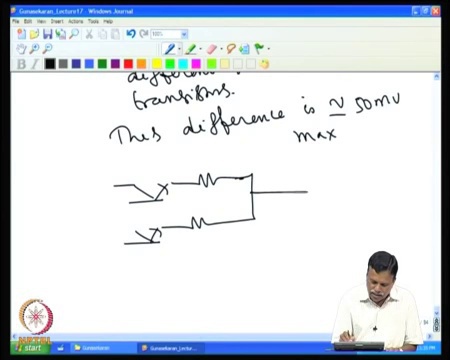 Gunasekaran_Lecture17 - Windows Journal
File Edit View Insert Actions Tools Help
100%
B I
transistors.
This difference is ≃ 50mV
max
NPTEL
start
Gunasekaran
Gunasekaran_Lec...